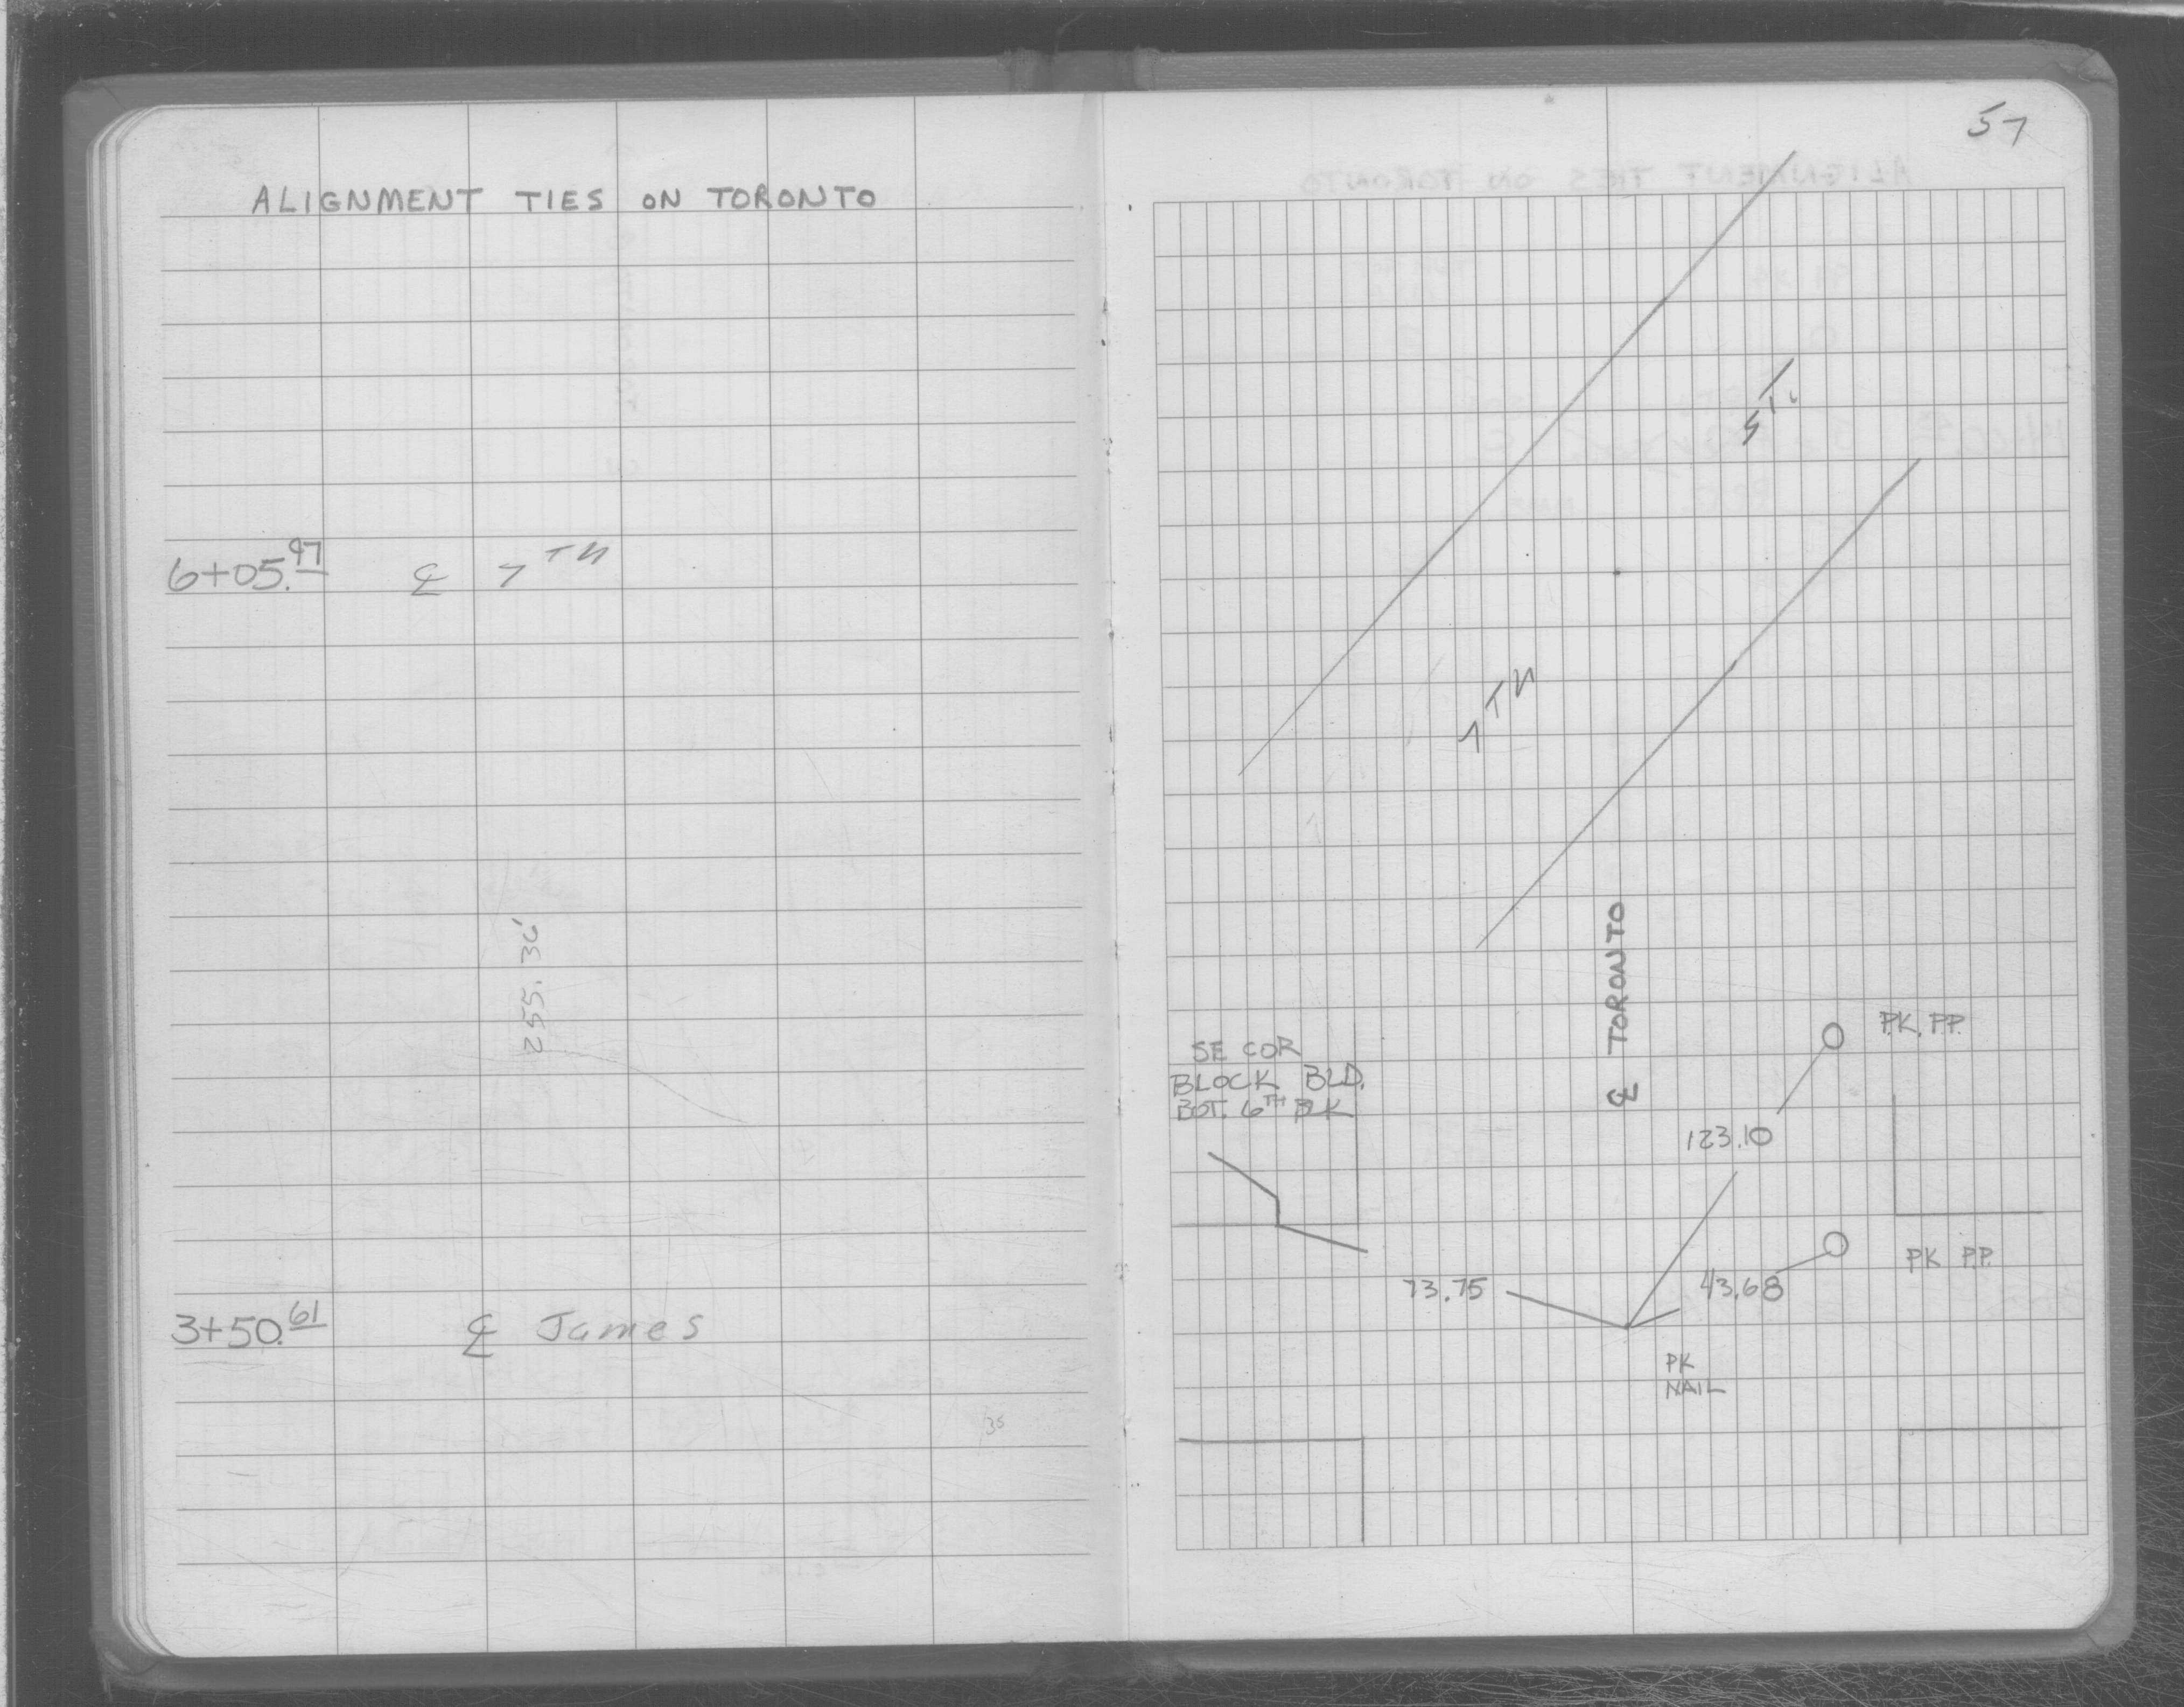 ALIGNMENT TIES ON TORONTO
6+05.97 ℄ 7TH
255.36'
3+50.61 ℄ James
35
57
ST.
7TH
℄ TORONTO
P.K. P.P.
SE COR
BLOCK BLD.
BOT. 6TH BLK
123.10
PK P.P.
73.75
43.68
PK
NAIL